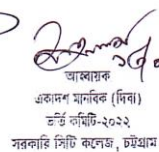 আহবায়ক
একাদশ মানবিক (দিবা)
ভর্তি কমিটি-২০২২
সরকারি সিটি কলেজ, চট্টগ্রাম